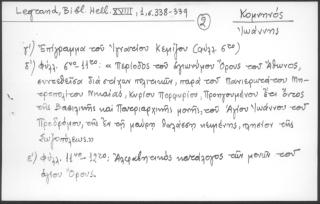 Legrand, Bibl. Hell. XVIII, 1, σ. 338-339
②
Κομνηνός
Ἰωάννης
γ') Ἐπίγραμμα τοῦ Ἰγνατίου (φύλλ. 6το)
δ') Φύλλ. 6το-11το: «Περίοδος τοῦ ἁγιωνύμου Ὄρους τοῦ Ἄθωνος,
συντεθεῖσα διὰ στίχων πολιτικῶν, παρὰ τοῦ Πανιερωτάτου Μη-
τροπολίτου Νικαίας, Κυρίου Πορφυρίου, Προηγουμένου ἔτι ὄντος
τῆς Βασιλικῆς καὶ Πατριαρχικῆς μονῆς, τοῦ Ἁγίου Ἰωάννου τοῦ
Προδρόμου, τῆς ἐν τῇ μαύρῃ θαλάσσῃ κειμένης, πλησίον τῆς
Σωζοπόλεως.»
ε') Φύλλ. 11το-12το: Ἀλφαβητικὸς κατάλογος τῶν μονῶν τοῦ
ἁγίου Ὄρους.